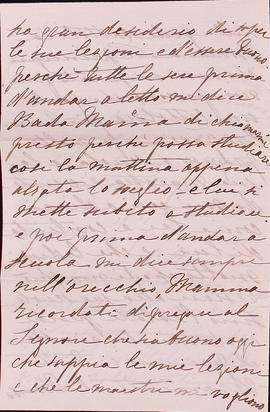 ha gran desiderio di saper
le sue lezioni e d'essere buono
perchè tutte le sere prima
d'andar a letto mi dice
Bada Mamma di chiamarmi
presto perchè possa studiare
così la mattina appena
alzata lo sveglio e lui si
mette subito a studiare
e poi prima d'andar a
scuola mi dice sempre
nell'orecchio, Mamma
ricordati di pregar al
Signore che sia buono oggi
che sappia le mie lezioni
e che le maestre mi vogliono